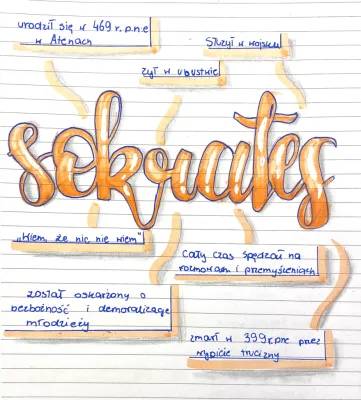 urodził się w 469 r. p.n.e
w Atenach
Służył w wojsku
żył w ubustwie
sokrates
„Wiem, że nic nie wiem"
Cały czas spędzał na
rozmowach i przemyśleniach
został oskarżony o
bezbożność i demoralizację
młodzieży
zmarł w 399r.pne przez
wypicie trucizny